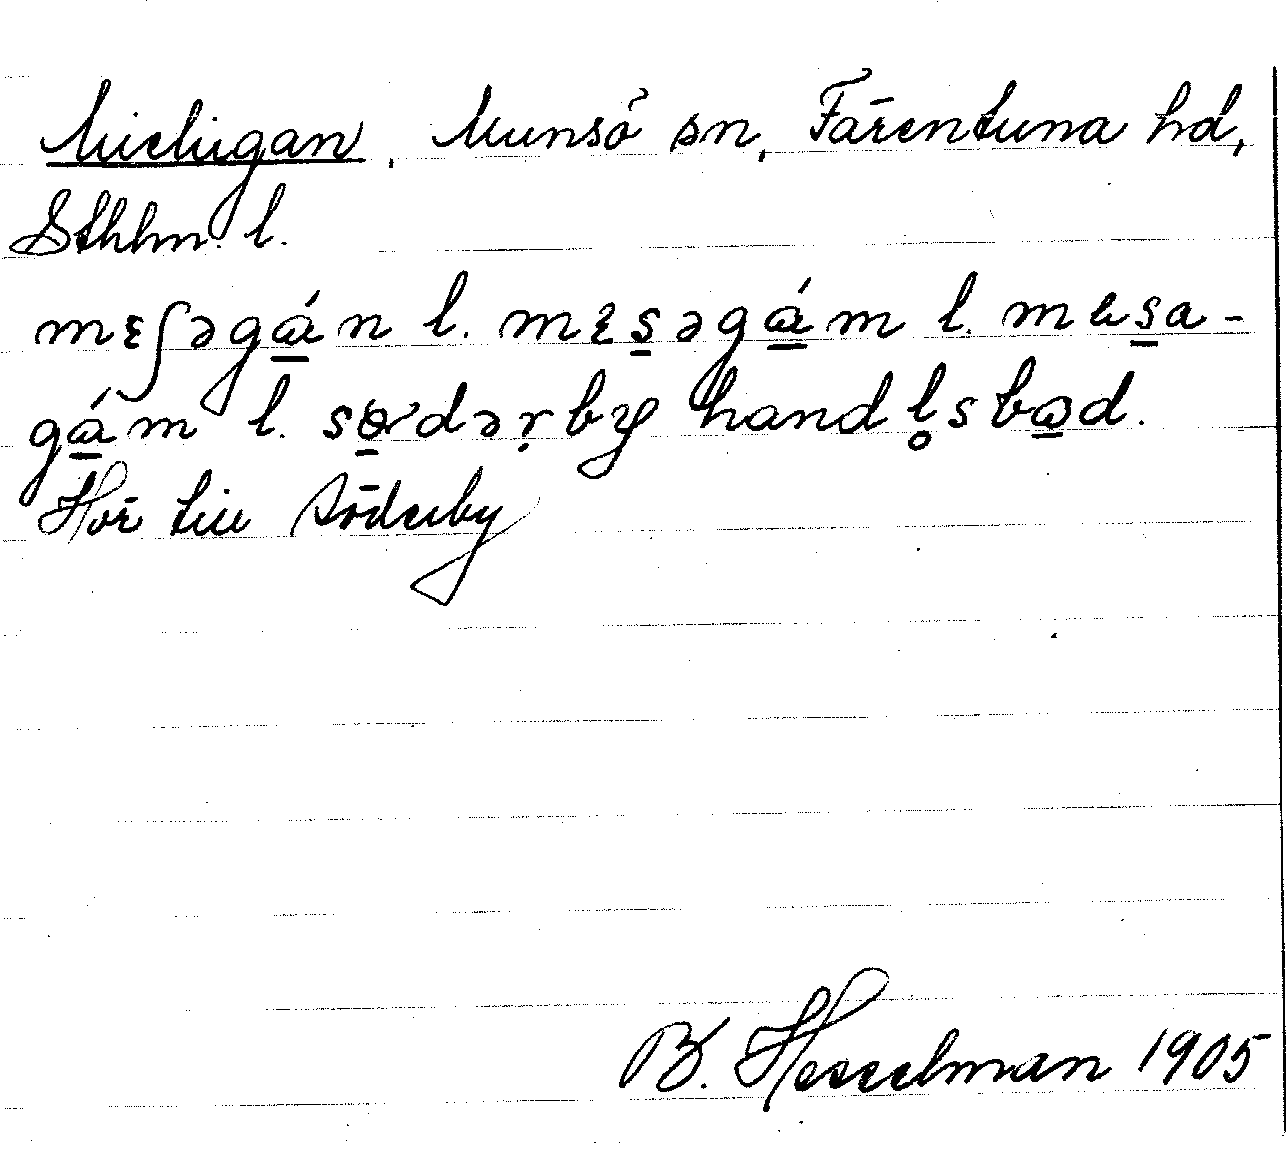 Michigan, Munsö sn, Färentuna hd,
Sthlm. l.
mɛʃəgá̱n l. mɛs̱əgá̱m l. mɛs̱a-
gá̱m l. sø̱dəṛby handl̥sbo̱d.
Hör till Söderby
B. Hesselman 1905